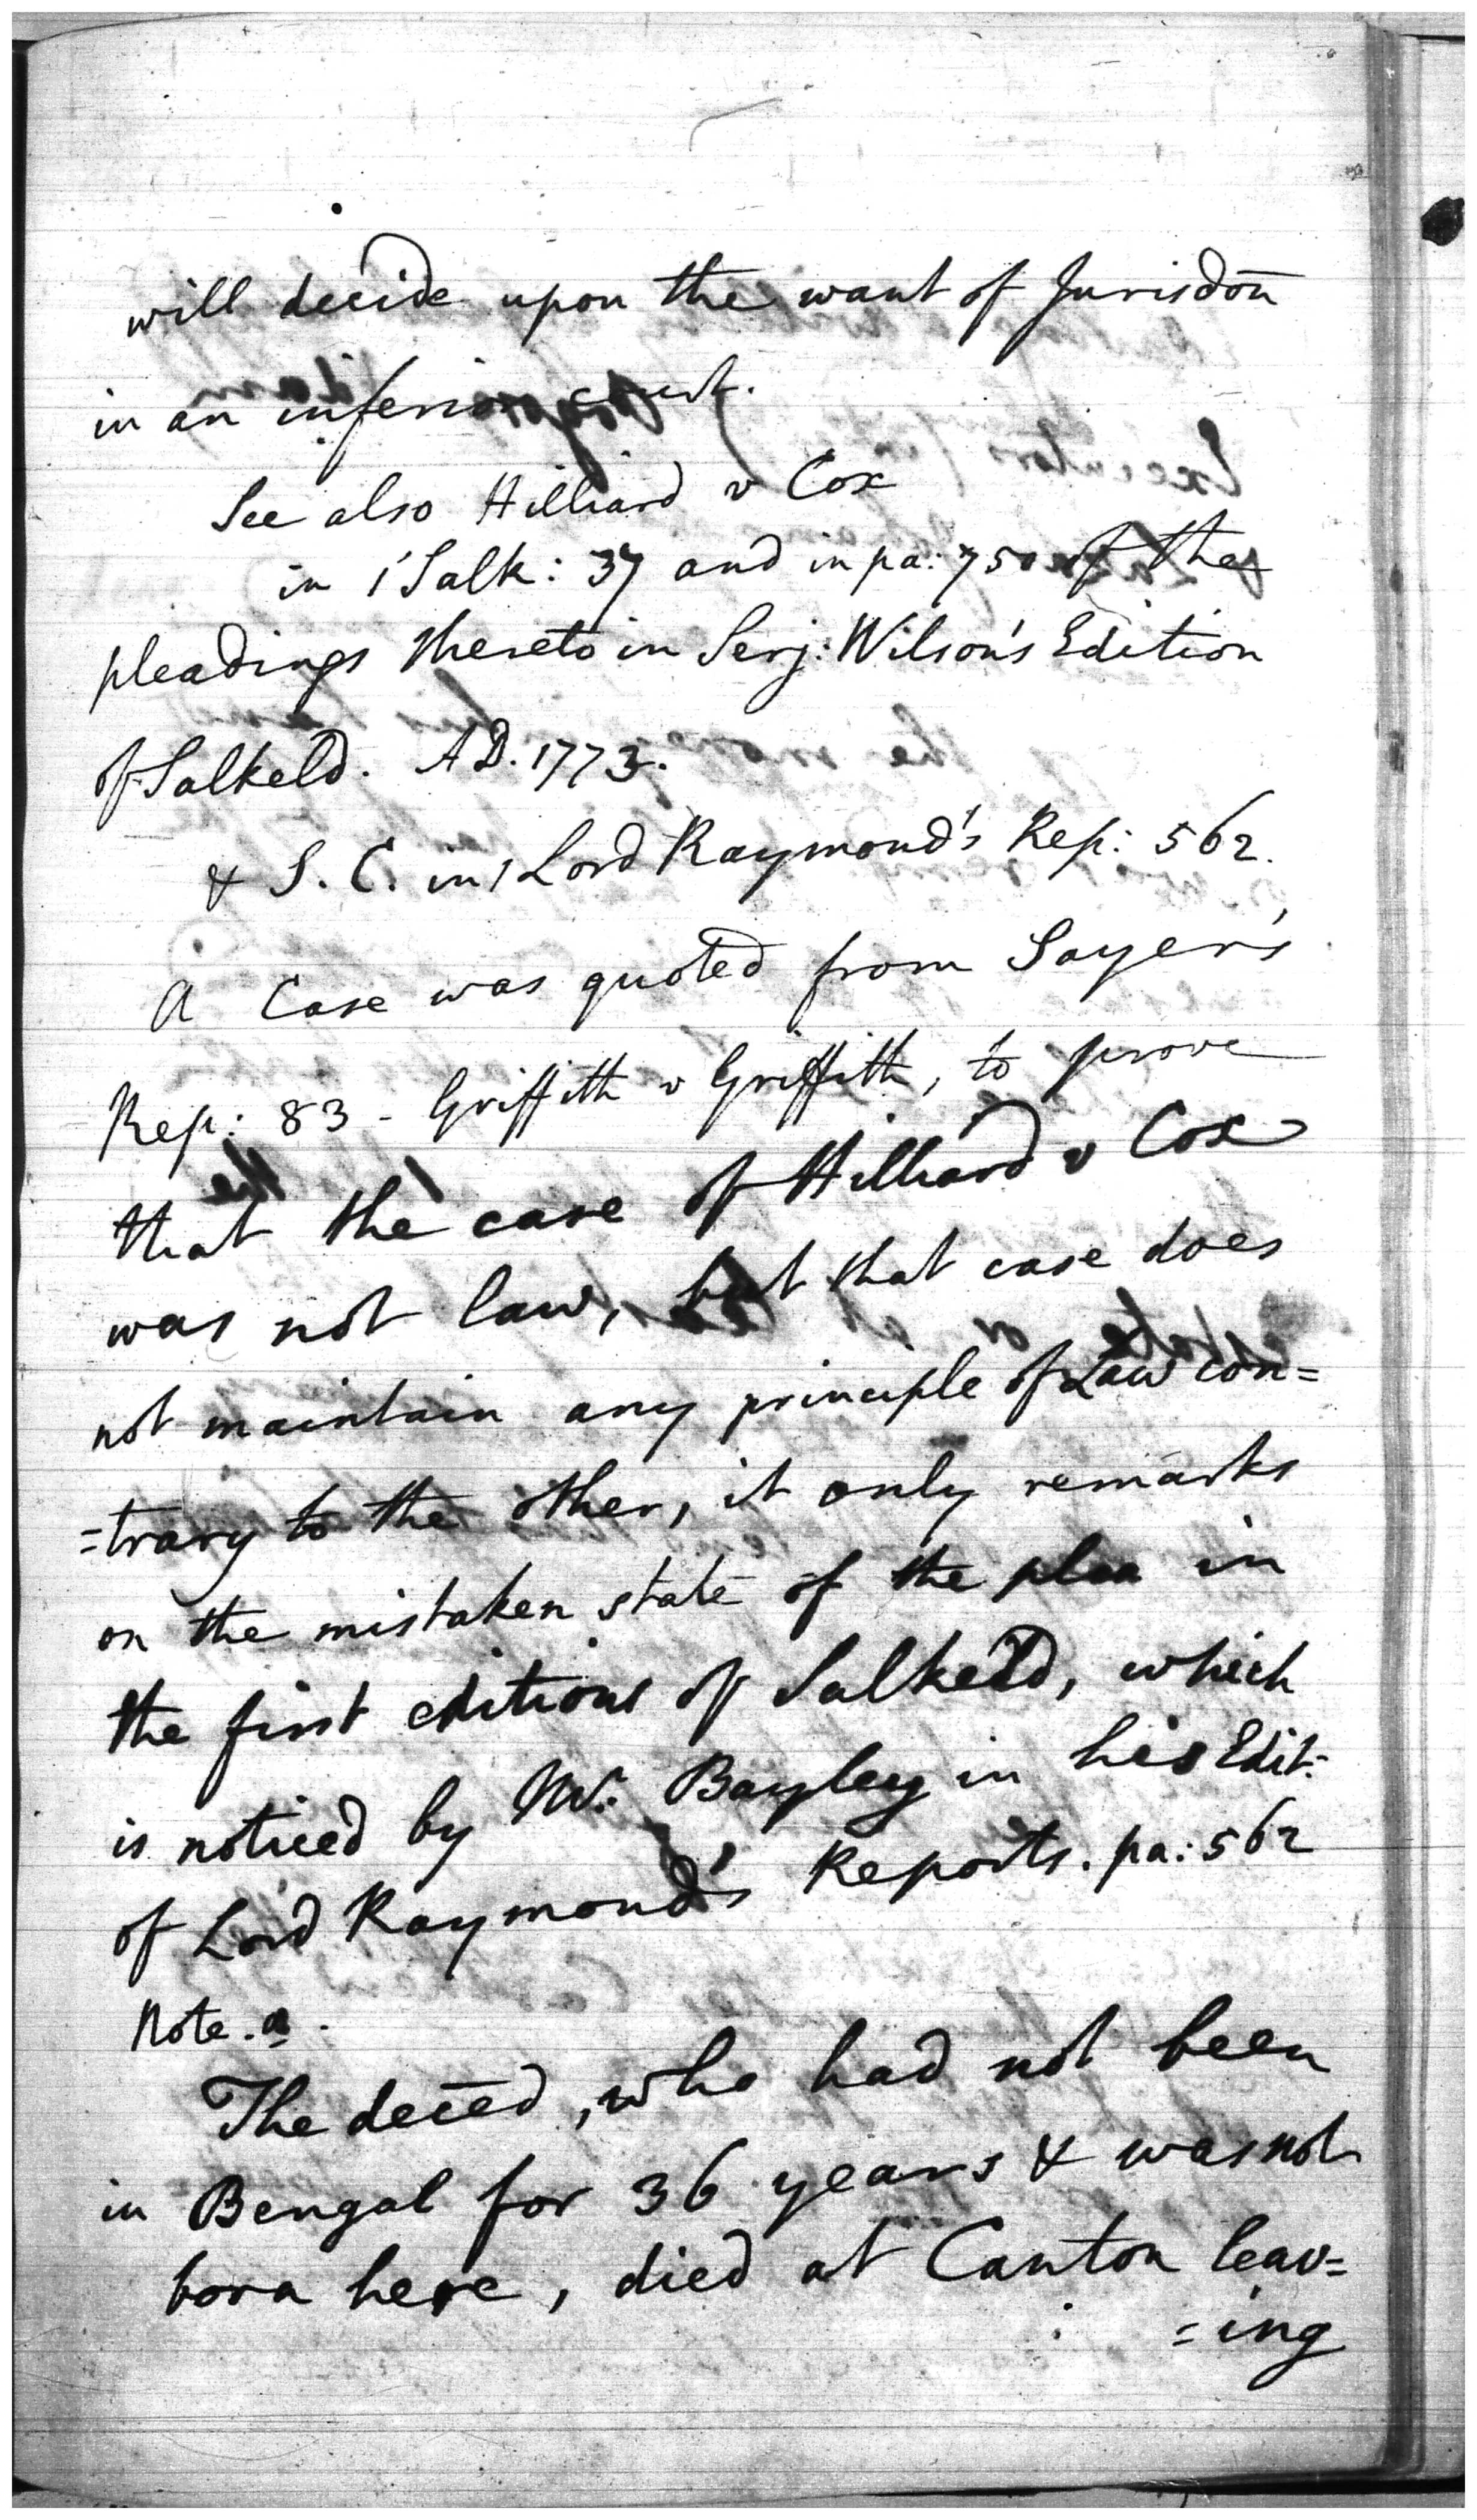 will decide upon the want of Jurisdōn
in an inferior court.
See also Hilliard v Cox
in 1 Salk: 37 and in pa: 750 of the
pleadings thereto in Serj: Wilson's Edition
of Salkeld. AD. 1773.
& S. C. in 1 Lord Raymond's Rep: 562.
A Case was quoted from Sayer's
Rep: 83 - Griffith v Griffith, to prove
that the case of Hilliard v Cox
was not law, but that case does
not maintain any principle of Law con=
=trary to the other, it only remarks
on the mistaken state of the plea in
the first editions of Salkeld, which
is noticed by Mr. Bayley in his Edit:
of Lord Raymond's Reports. pa: 562
Note. a.
The decēd, who had not been
in Bengal for 36 years & was not
born here, died at Canton leav=
=ing